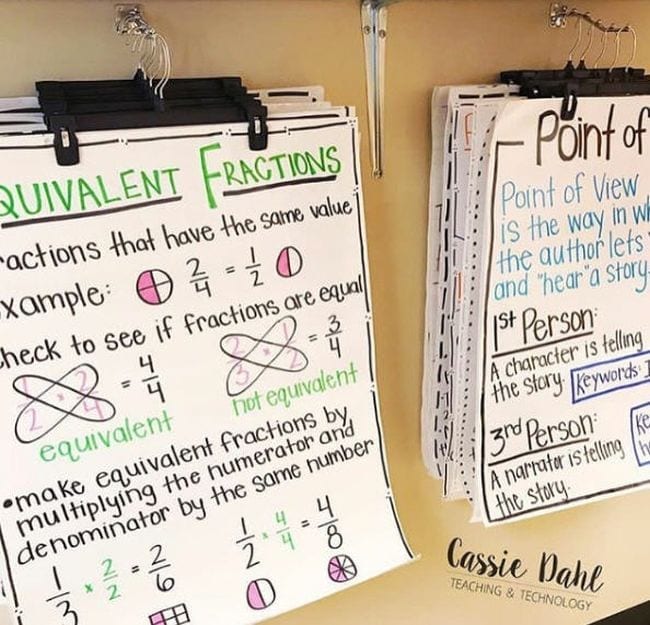 QUIVALENT FRACTIONS
actions that have the same value
xample: 2/4 = 1/2
heck to see if fractions are equal
1/2 × 2/4 = 4/4
equivalent
2/3 × 1/2 = 3/4
not equivalent
•make equivalent fractions by
multiplying the numerator and
denominator by the same number
1/3 × 2/2 = 2/6
1/2 · 4/4 = 4/8
Point of
Point of View
is the way in wh
the author lets
and "hear" a story
1st Person:
A character is telling
the story. Keywords: I
3rd Person:
A narrator is telling
the story.
Cassie Dahl
TEACHING & TECHNOLOGY